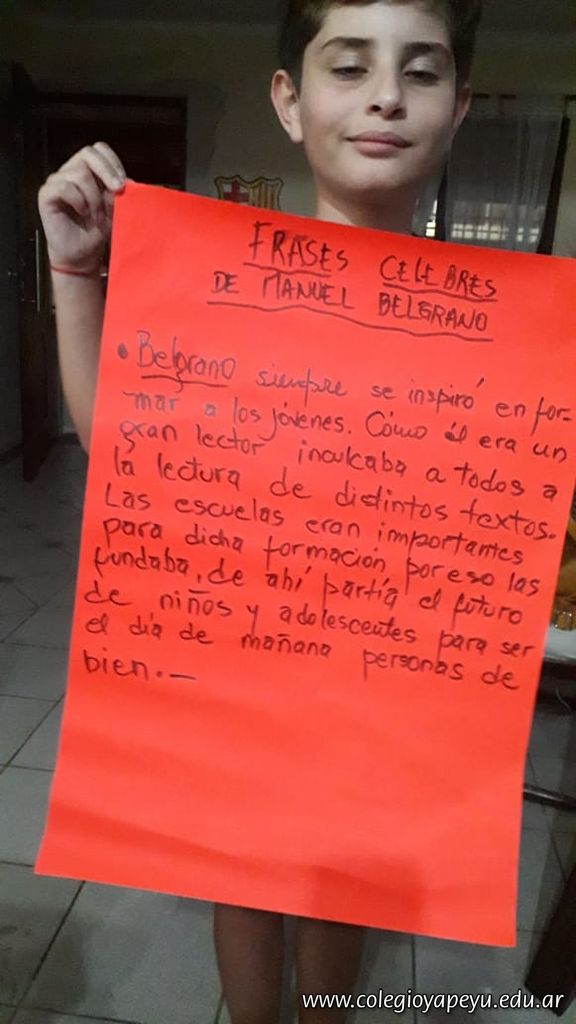 FRASES CELEBRES
DE MANUEL BELGRANO
• Belgrano siempre se inspiró en for-
mar a los jóvenes. Cómo él era un
gran lector inculcaba a todos a
la lectura de distintos textos.
Las escuelas eran importantes
para dicha formación por eso las
fundaba, de ahí partía el futuro
de niños y adolescentes para ser
el día de mañana personas de
bien.—
www.colegioyapeyu.edu.ar